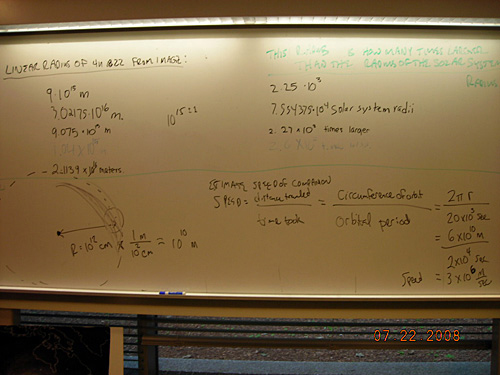 LINEAR RADIUS OF 4U 1822 FROM IMAGE:
9·10¹⁵ m
3.02175·10¹⁶ m.
9.075·10¹⁵ m
2.1134 × 10¹⁶ meters
10¹⁵ = 1
THIS RADIUS IS HOW MANY TIMES LARGER
THAN THE RADIUS OF THE SOLAR SYSTEM
RADIUS
2.25·10³
7.554375·10⁴ Solar system radii
2.27 × 10⁴ times larger
R = 10¹² cm × 1 m / 10² cm = 10¹⁰ m
ESTIMATE SPEED OF COMPANION
SPEED = distance traveled / time took = Circumference of orbit / orbital period = 2πr / 20×10³ sec
= 6×10¹⁰ m / 2×10⁴ sec
Speed = 3×10⁶ m/sec
07 22 2008